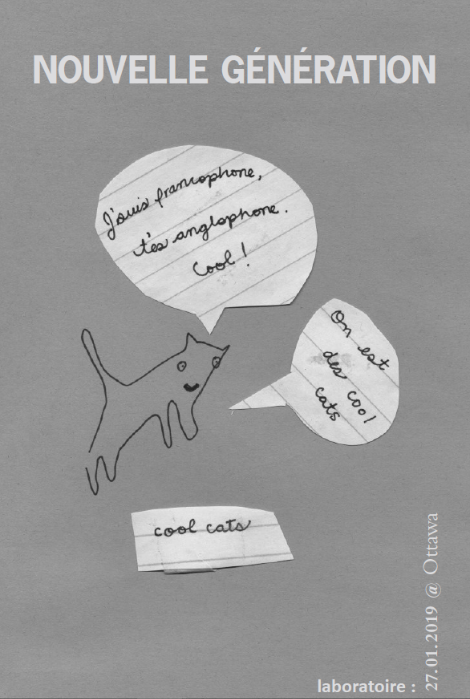 NOUVELLE GÉNÉRATION
J'suis francophone,
t'es anglophone.
Cool !
On est
des cool
cats
cool cats
laboratoire :
27.01.2019 @ Ottawa